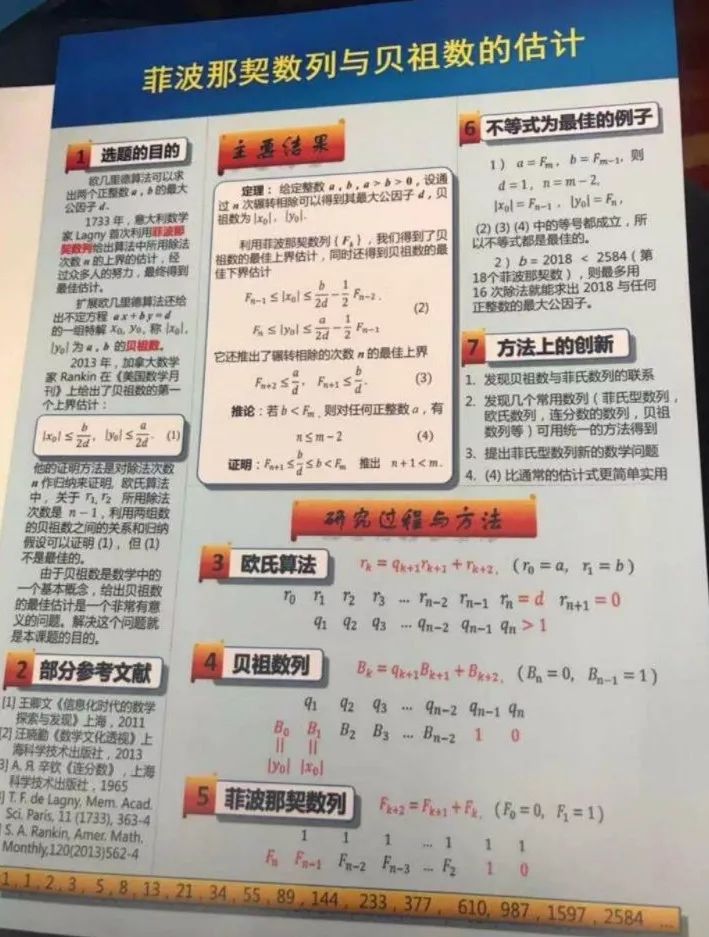 菲波那契数列与贝祖数的估计
1 选题的目的
欧几里德算法可以求
出两个正整数 a，b 的最大
公因子 d.
1733 年，意大利数学
家 Lagny 首次利用菲波那
契数列给出算法中所用除法
次数 n 的上界的估计，经
过众多人的努力，最终得到
最佳估计。
扩展欧几里德算法还给
出不定方程 ax+by=d
的一组特解 x₀, y₀, 称 |x₀|,
|y₀| 为 a，b 的贝祖数。
2013 年，加拿大数学
家 Rankin 在《美国数学月
刊》上给出了贝祖数的第一
个上界估计：
|x₀| ≤ b/2d, |y₀| ≤ a/2d. (1)
他的证明方法是对除法次数
n 作归纳来证明, 欧氏算法
中，关于 r₁, r₂ 所用除法
次数是 n−1，利用两组数
的贝祖数之间的关系和归纳
假设可以证明 (1)，但 (1)
不是最佳的。
由于贝祖数是数学中的
一个基本概念，给出贝祖数
的最佳估计是一个非常有意
义的问题。解决这个问题就
是本课题的目的。
2 部分参考文献
[1] 王卿文《信息化时代的数学
探索与发现》上海，2011
[2] 汪晓勤《数学文化透视》上
海科学技术出版社，2013
3] А. Я. 辛钦《连分数》，上海
科学技术出版社，1965
] T. F. de Lagny, Mem. Acad.
Sci. Paris, 11 (1733), 363-4
] S. A. Rankin, Amer. Math.
Monthly,120(2013)562-4
主要结果
定理：给定整数 a，b，a > b > 0，设通
过 n 次辗转相除可以得到其最大公因子 d，贝
祖数为 |x₀|，|y₀|.
利用菲波那契数列 { Fₖ }，我们得到了贝
祖数的最佳上界估计，同时还得到贝祖数的最
佳下界估计
Fₙ₋₁ ≤ |x₀| ≤ b/2d − 1/2 Fₙ₋₂ ,
(2)
Fₙ ≤ |y₀| ≤ a/2d − 1/2 Fₙ₋₁
它还推出了辗转相除的次数 n 的最佳上界
Fₙ₊₂ ≤ a/d, Fₙ₊₁ ≤ b/d. (3)
推论：若 b < Fₘ , 则对任何正整数 a，有
n ≤ m − 2 (4)
证明：Fₙ₊₁ ≤ b/d ≤ b < Fₘ 推出 n + 1 < m.
6 不等式为最佳的例子
1） a = Fₘ，b = Fₘ₋₁，则
d = 1，n = m − 2,
|x₀| = Fₙ₋₁， |y₀| = Fₙ,
(2) (3) (4) 中的等号都成立，所
以不等式都是最佳的。
2） b = 2018 < 2584（第
18个菲波那契数），则最多用
16 次除法就能求出 2018 与任何
正整数的最大公因子。
7 方法上的创新
1. 发现贝祖数与菲氏数列的联系
2. 发现几个常用数列（菲氏型数列，
欧氏数列，连分数的数列，贝祖
数列等）可用统一的方法得到
3. 提出菲氏型数列新的数学问题
4. (4) 比通常的估计式更简单实用
研究过程与方法
3 欧氏算法 rₖ = qₖ₊₁rₖ₊₁ + rₖ₊₂,（r₀ = a, r₁ = b）
r₀ r₁ r₂ r₃ … rₙ₋₂ rₙ₋₁ rₙ = d rₙ₊₁ = 0
q₁ q₂ q₃ … qₙ₋₂ qₙ₋₁ qₙ > 1
4 贝祖数列 Bₖ = qₖ₊₁Bₖ₊₁ + Bₖ₊₂,（Bₙ = 0, Bₙ₋₁ = 1）
q₁ q₂ q₃ … qₙ₋₂ qₙ₋₁ qₙ
B₀ B₁ B₂ B₃ … Bₙ₋₂ 1 0
|| ||
|y₀| |x₀|
5 菲波那契数列 Fₖ₊₂ = Fₖ₊₁ + Fₖ,（F₀ = 0, F₁ = 1）
1 1 1 … 1 1 1
Fₙ Fₙ₋₁ Fₙ₋₂ Fₙ₋₃ … F₂ 1 0
1, 1, 2, 3, 5, 8, 13, 21, 34, 55, 89, 144, 233, 377, 610, 987, 1597, 2584 …